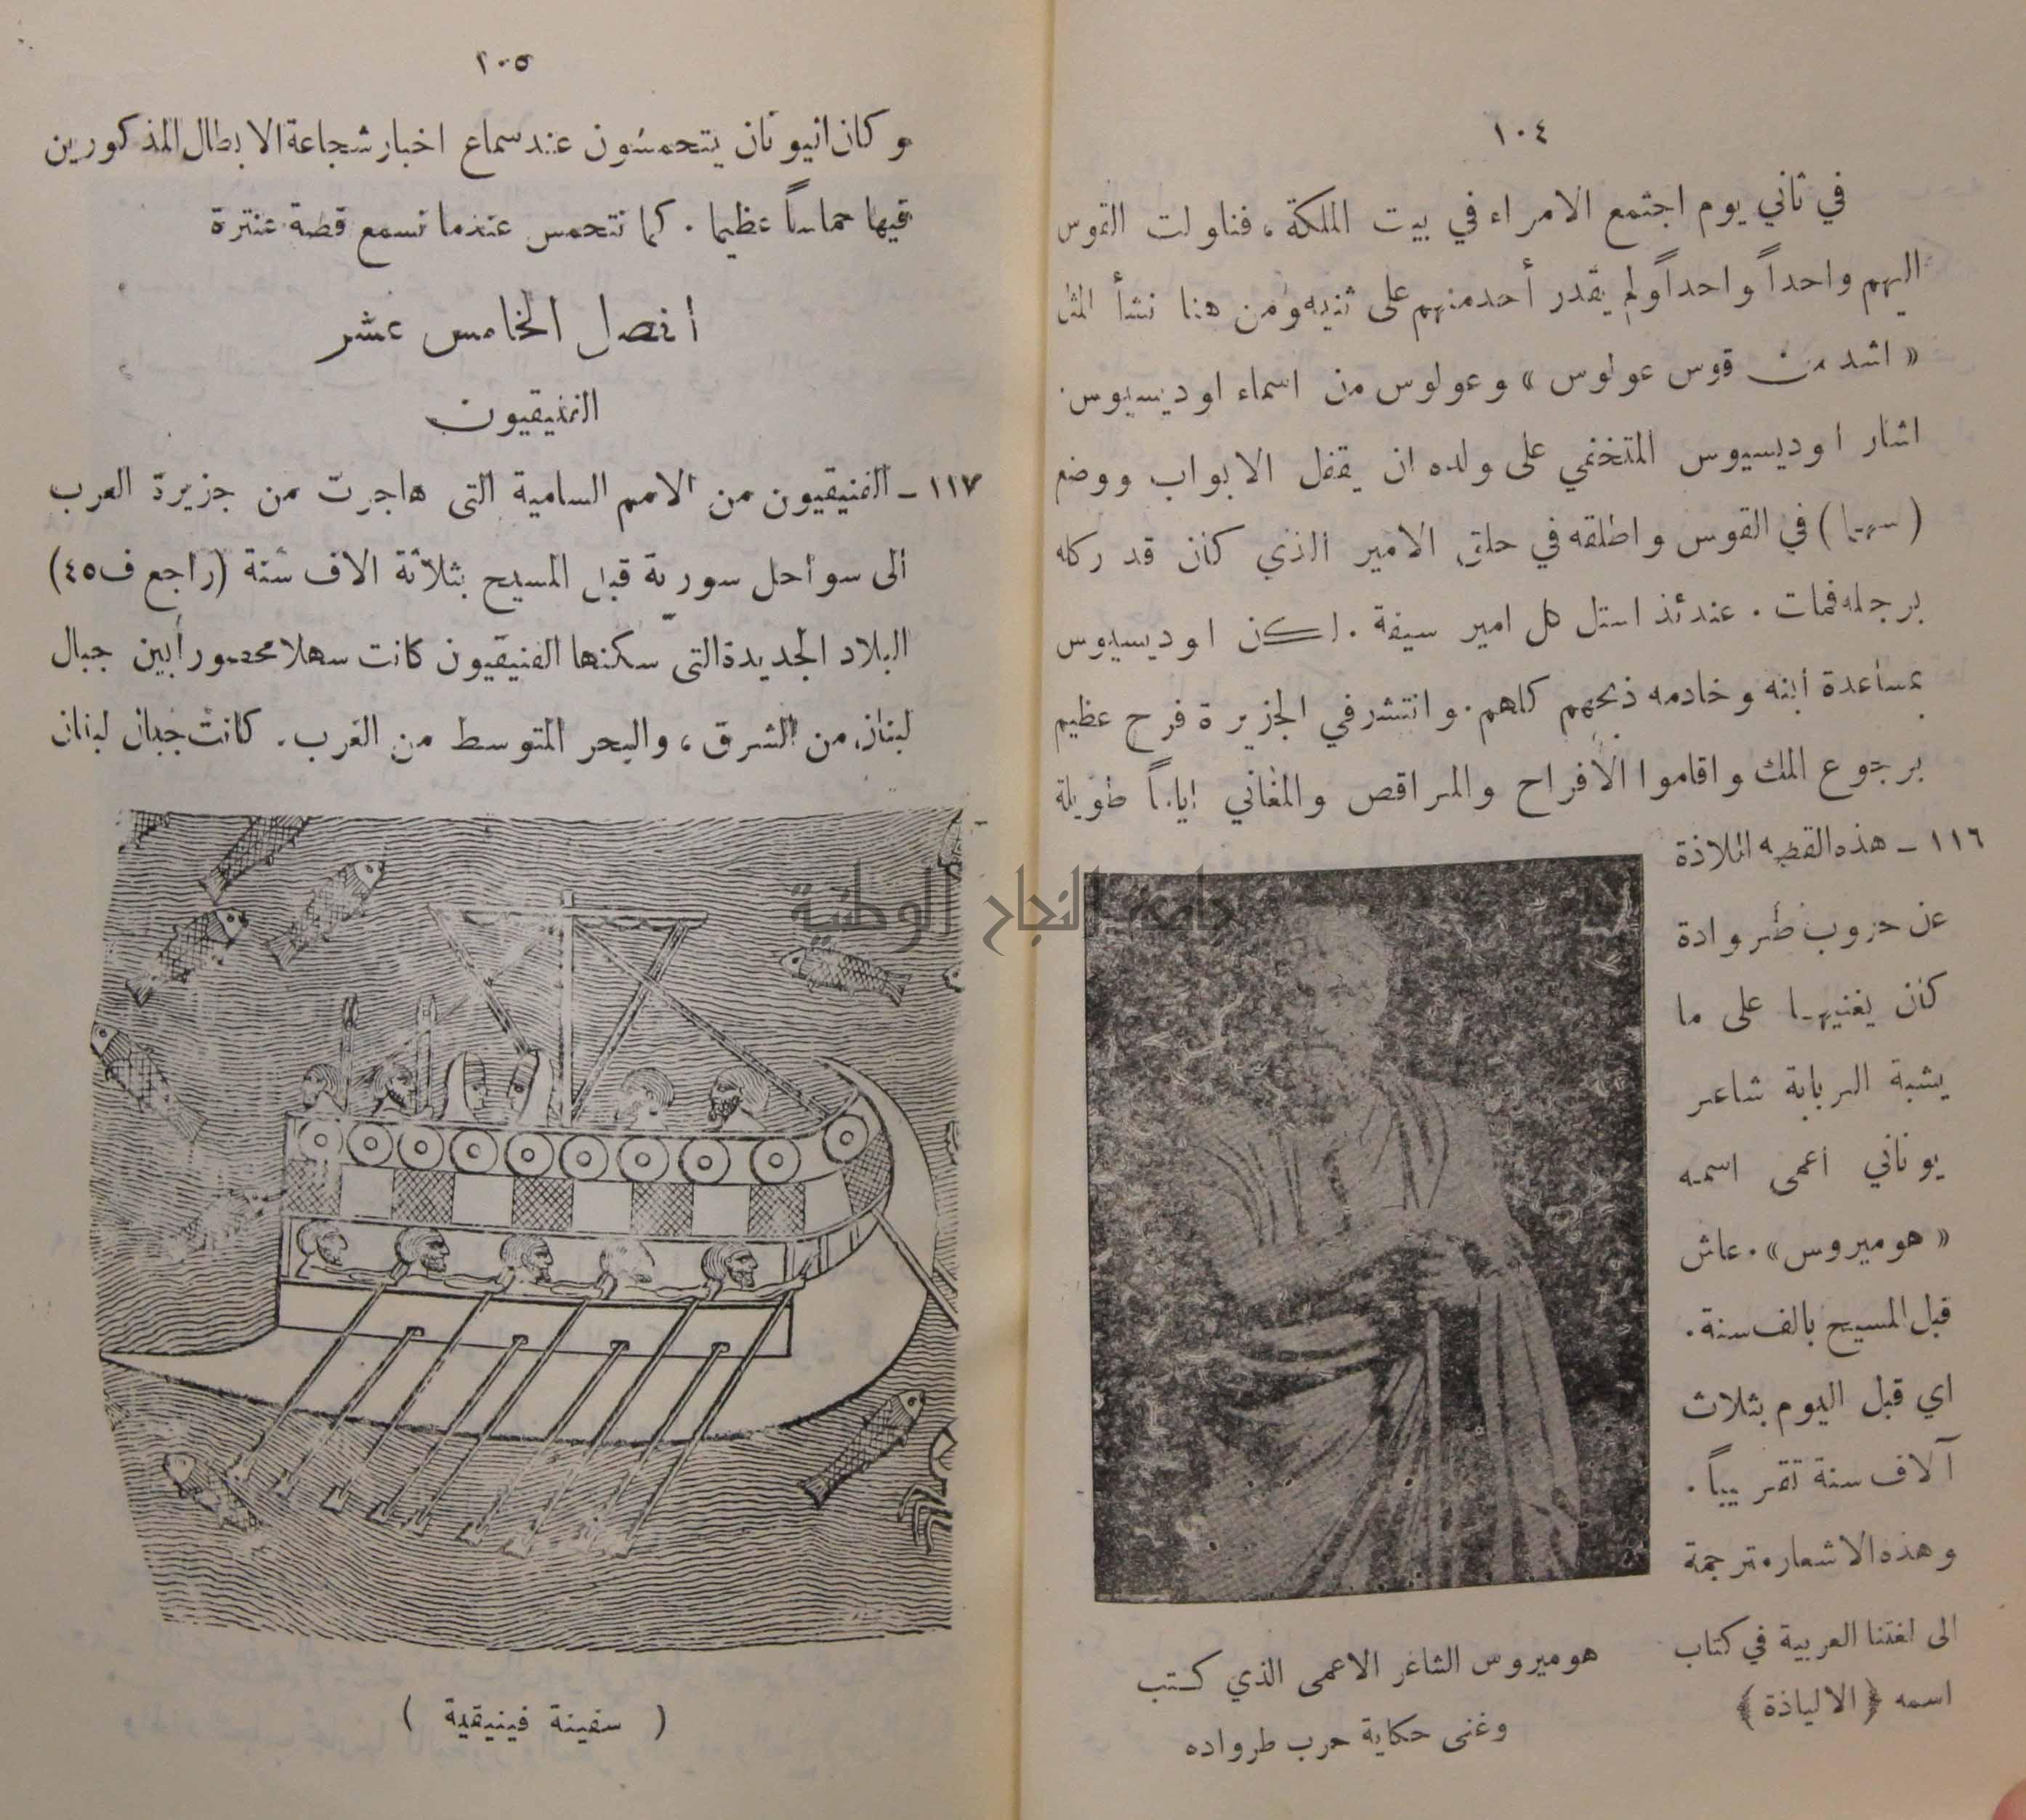 ١٠٤
في ثاني يوم اجتمع الامراء في بيت الملكة ، فناولت القوس
اليهم واحداً واحداً ولم يقدر أحد منهم على ثنيه ومن هنا نشأ المثل
« اشد من قوس عولوس » وعولوس من اسماء اوديسيوس .
اشار اوديسيوس المتخفي على ولده ان يقفل الابواب ووضع
( سهما ) في القوس واطلقه في حلق الامير الذي كان قد ركله
برجله فمات . عندئذ استل كل امير سيفة . لكن اوديسيوس
بمساعدة ابنه وخادمه ذبحهم كلهم . وانتشر في الجزيرة فرح عظيم
برجوع الملك واقاموا الأفراح والمراقص والمغاني اياماً طويلة
١١٦ ـ هذه القصه اللاذة
عن حروب طروادة
كان يغنيها على ما
يشبة الربابة شاعر
يوناني اعمى اسمه
« هوميروس » . عاش
قبل المسيح بالف سنة .
اي قبل اليوم بثلاث
آلاف سنة تقريباً .
وهذه الاشعار مترجمة
الى لغتنا العربية في كتاب
اسمه ﴿ الالياذة ﴾
هوميروس الشاعر الاعمى الذي كتب
وغنى حكاية حرب طرواده
جامعة النجاح الوطنية
١٠٥
وكان اليونان يتحمسون عند سماع اخبار شجاعة الابطال المذكورين
فيها حماساً عظيما . كما نتحمس عندما نسمع قصة عنترة
الفصل الخامس عشر
الفنيقيون
١١٧ ـ الفنيقيون من الامم السامية التى هاجرت من جزيرة العرب
الى سواحل سورية قبل المسيح بثلاثة الاف سنة ( راجع ف ٤٥ )
البلاد الجديدة التى سكنها الفنيقيون كانت سهلا محصورا بين جبال
لبنان من الشرق ، والبحر المتوسط من الغرب . كانت جبال لبنان
( سفينة فينيقية )